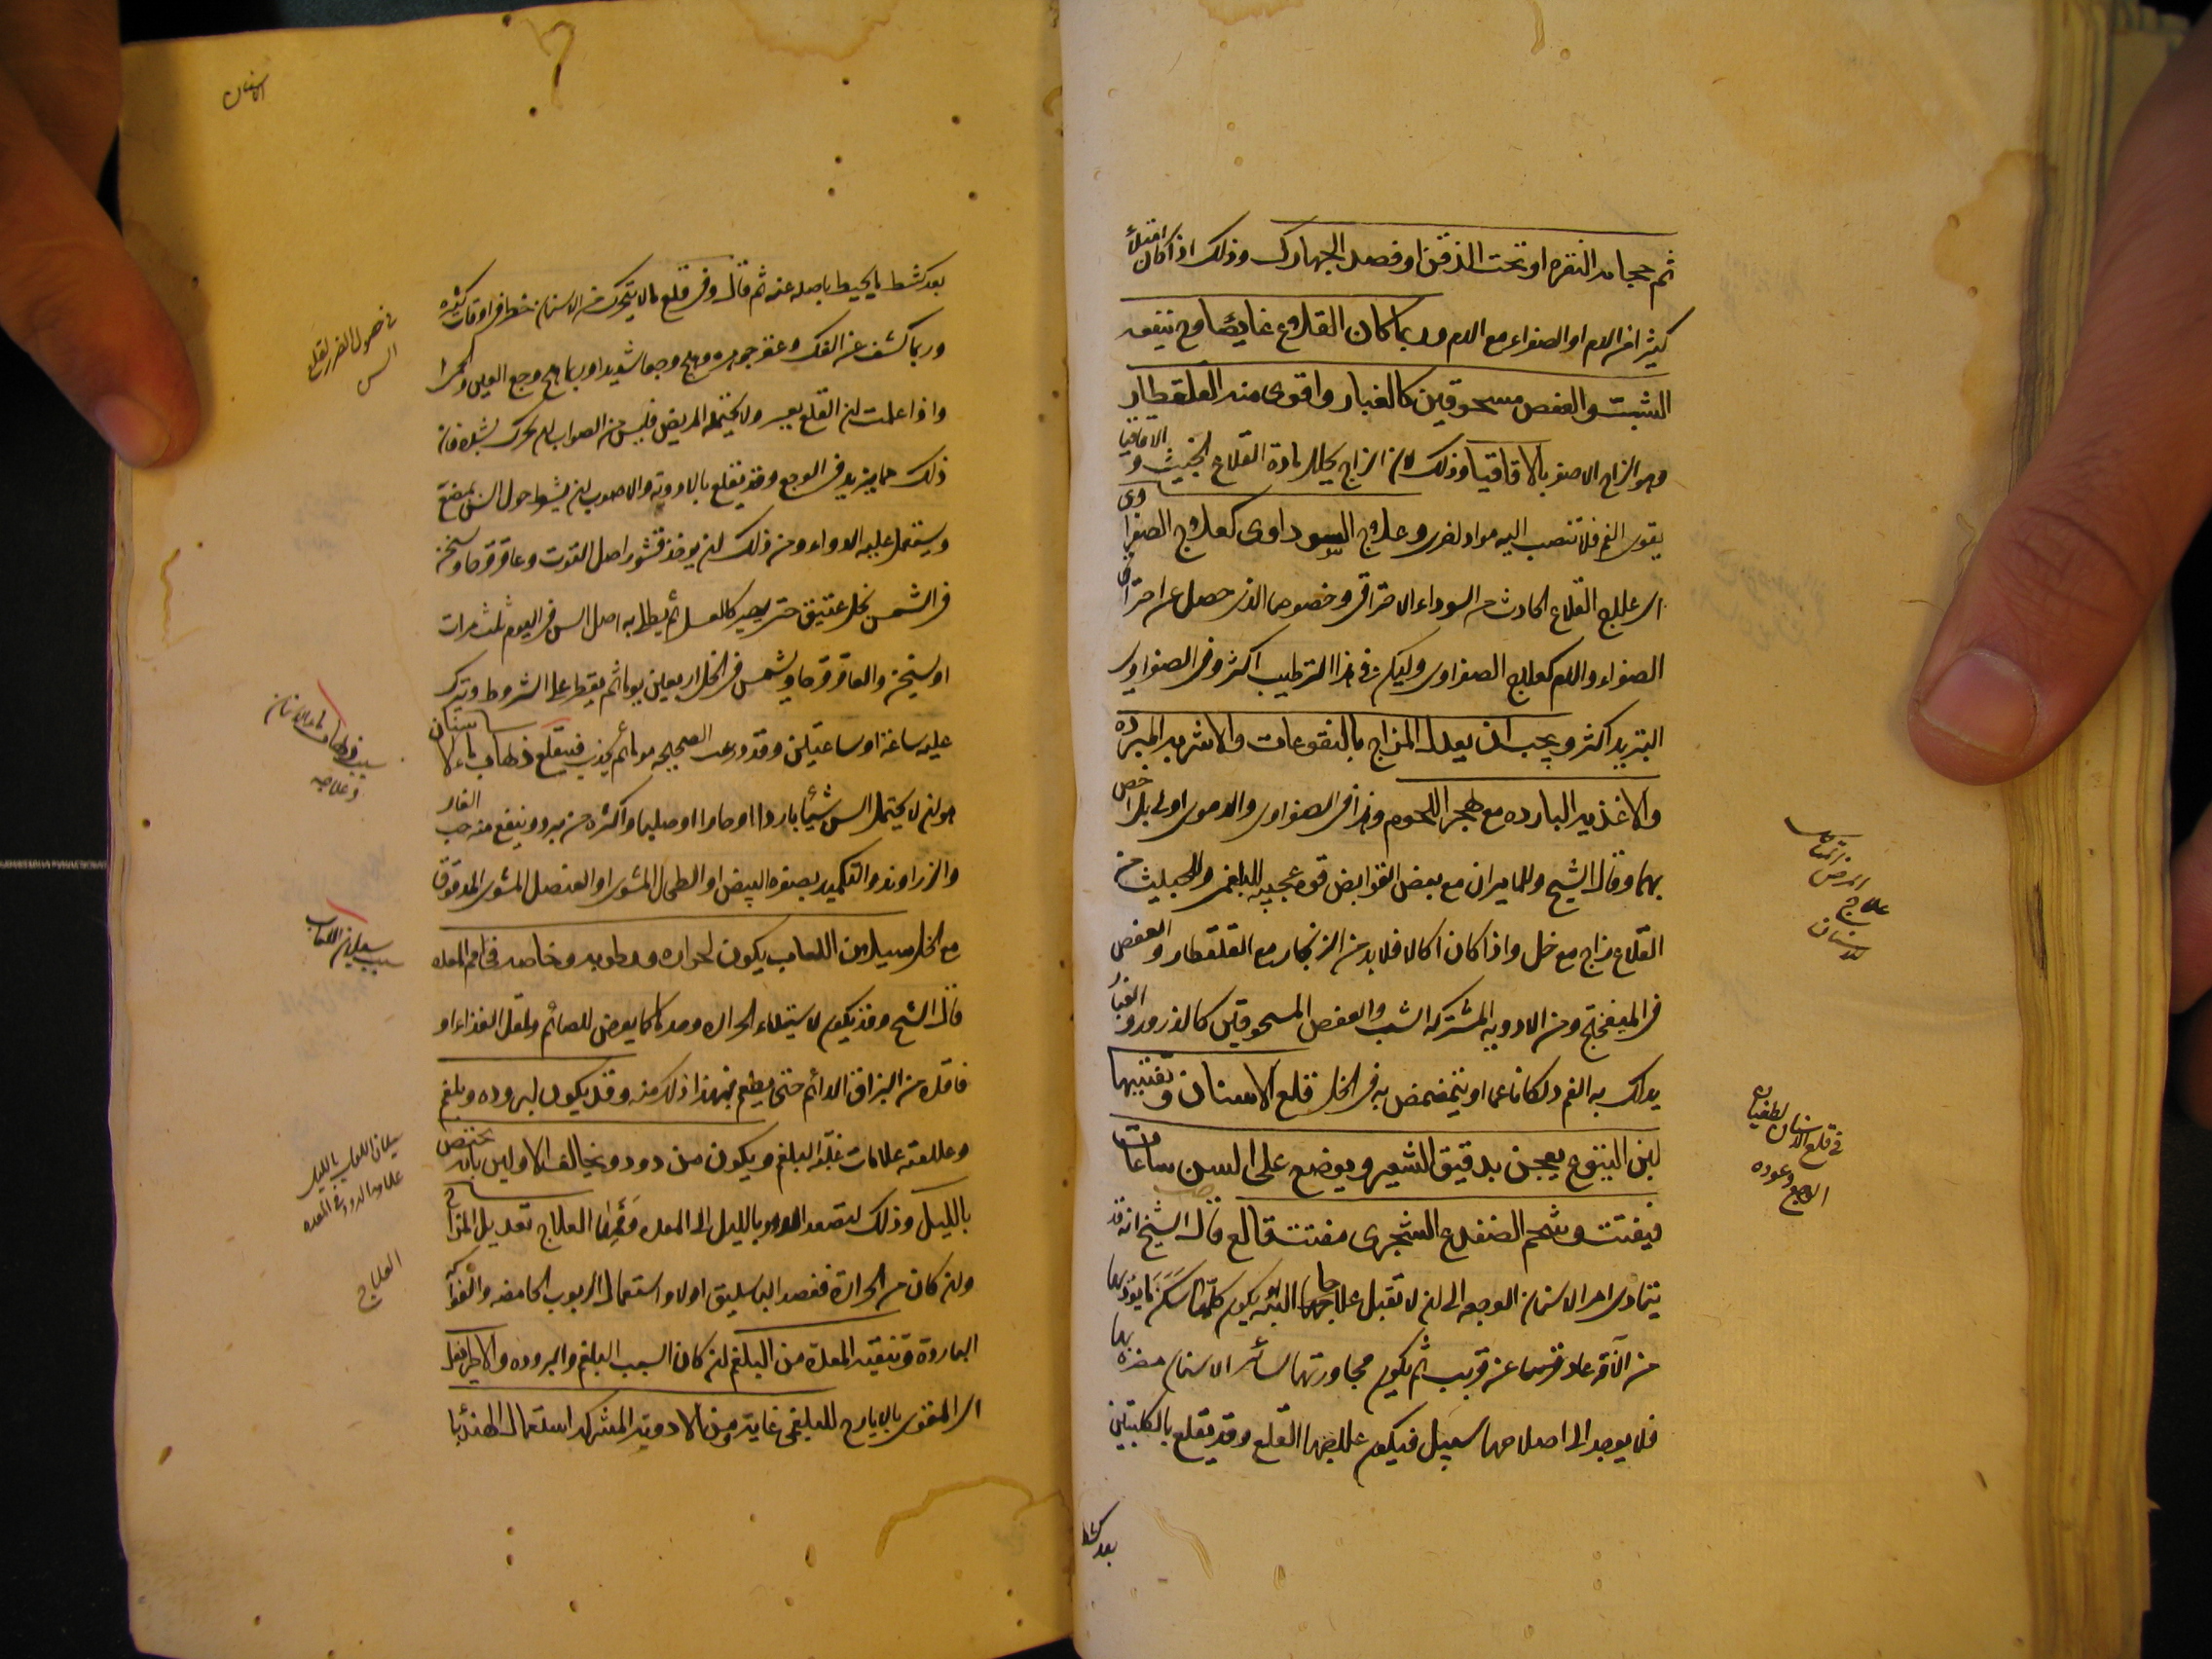 ثم حجامة النقرة او تحت الذقن او فصد الجهارك وذلك اذا كان امتلاء
كثيرا من الدم او الصفراء مع الدم وربما كان القلاع غايصا وح ينفعه
الشب والعفص مسحوقين كالغبار واقوى منه القلقطار
وهو الزاج الاصفر بالاقاقيا وذلك لان الزاج يحلل مادة القلاع الخبيث والاقاقيا
يقوى الفم فلا تنصب اليه مواد اخرى وعلاج السوداوى كعلاج الصفراوى
اى علاج القلاع الحادث من السوداء الاحتراقى وخصوصا الذى حصل عن احتراق
الصفراء والدم كعلاج الصفراوى وليكن فى هذا الترطيب اكثر وفى الصفراوى
التبريد اكثر ويجب ان يعدل المزاج بالنقوعات والاشربة المبردة
والاغذية الباردة مع هجر اللحوم وهذا فى الصفراوى والدموى اولى بل اخص
بهما وقال الشيخ وللماميران مع بعض القوابض قوة عجيبة للبلغمى والخبيث من
القلاع زاج مع خل واذا كان اكالا فلا بد من الزنجار مع القلقطار والعفص
فى الميفختج ومن الادوية المشتركة الشب والعفص المسحوقين كالذرور والغبار
يدلك به الفم دلكا ناعما او يتمضمض به فى الخل قلع الاسنان وتفتيتها
لبن اليتوع يعجن بدقيق الشعير ويوضع على السن ساعات
فيفتت وشحم الضفدع الشجرى مفتت قالع قال الشيخ انه قد
يتمادى امر الاسنان الوجعة الى ان لا تقبل علاجا البتة او يكون كلما سكن ما يؤذيها
من الآفة عاد فيها عن قريب ثم يكون مجاورتها لسائر الاسنان مضرة بها
فلا يوجد الى اصلاحها سبيل فيكون علاجها القلع وقد يقلع بالكلبتين
بعد كشط
علاج المرض
فى قلع الاسنان
الوجع وعوده
الاسنان
بعد كشط ما يحيط باصله عنه ثم قال وفى قلع ما لا يتحرك من الاسنان خطر فى اوقات كثيرة
وربما كشف عن الفك وعفن جوهره وهيج وجعا شديدا وربما هيج وجع العين والحمى
واذا علمت ان القلع يعسر ولا يحتمله المريض فليس من الصواب ان يحرك بشدة فان
ذلك مما يزيد فى الوجع وقد يقلع بالادوية والاصوب ان يشرط حول السن بمبضع
ويستعمل عليه الدواء ومن ذلك ان يوخذ قشور اصل التوت وعاقرقرحا ويسحق
فى الشمس بخل عتيق حتى يصير كالعسل ثم يطلى به اصل السن فى اليوم ثلث مرات
او يسحق والعاقرقرحا ويشمس فى الخل اربعين يوما ثم يقطر على الشروط ويترك
عليه ساعة او ساعتين وقد درعت الصحيحه موما ثم يجذب فيقلع ذهاب ماء الاسنان
هو ان لا يحتمل السن شيأ باردا او حارا او صلبا واكثره من برد وينفع منه حب الغار
والزراوند والتكميد بصفرة البيض او الطحال المشوى او العنصل المشوى المدقوق
مع الخل سيلان اللعاب يكون لحرارة ورطوبة وخاصة فى فم المعدة
قال الشيخ وقد يكون لاستيلاء الحرارة وحدها كما يعرض للصائم ولمقل الغذاء او
فاقده من البزاق الدائم حتى يطعم فيهدأ ذلك منه وقد يكون لبرودة وبلغم
وعلامته علامات غلبة البلغم ويكون من دود ويخالف الاولين بانه يختص
بالليل وذلك لتصعد الدود بالليل الى المعدة وفمها العلاج تعديل المزاج
وان كان من الحرارة ففصد الباسليق اولا واستعمال الربوب الحامضة والفواكه
الباردة وتنقية المعدة من البلغم ان كان السبب البلغم والبرودة والاطريفل
اى المقوى بالايارج للبلغمى غاية ومن الادوية المشتركة استعمال الهندبا
فى حصول الضرر لقلع السن
سبب ذهاب ماء الاسنان
وعلاجه
سبب سيلان اللعاب
سيلان اللعاب بالليل
علامة الدود فى المعدة
العلاج